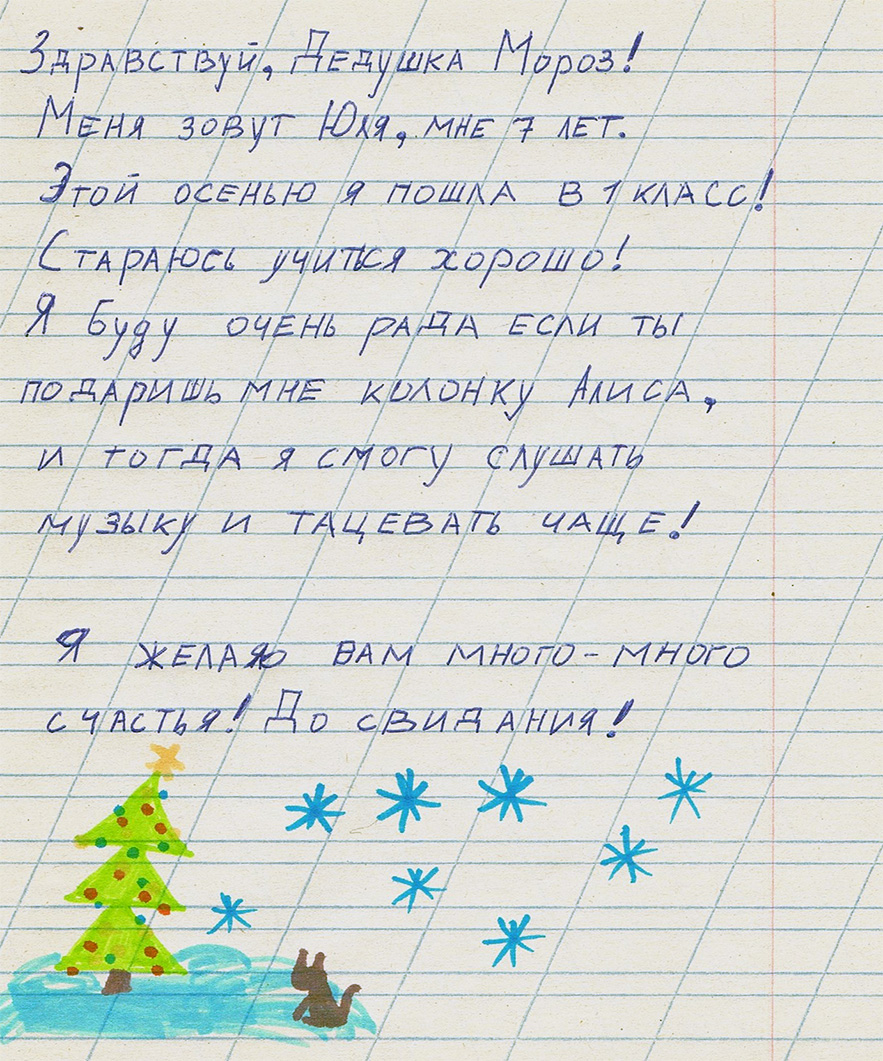 Здравствуй, Дедушка Мороз!
Меня зовут Юля, мне 7 лет.
Этой осенью я пошла в 1 класс!
Стараюсь учиться хорошо!
Я буду очень рада если ты
подаришь мне колонку Алиса,
и тогда я смогу слушать
музыку и тацевать чаще!
Я желаю вам много-много
счастья! До свидания!